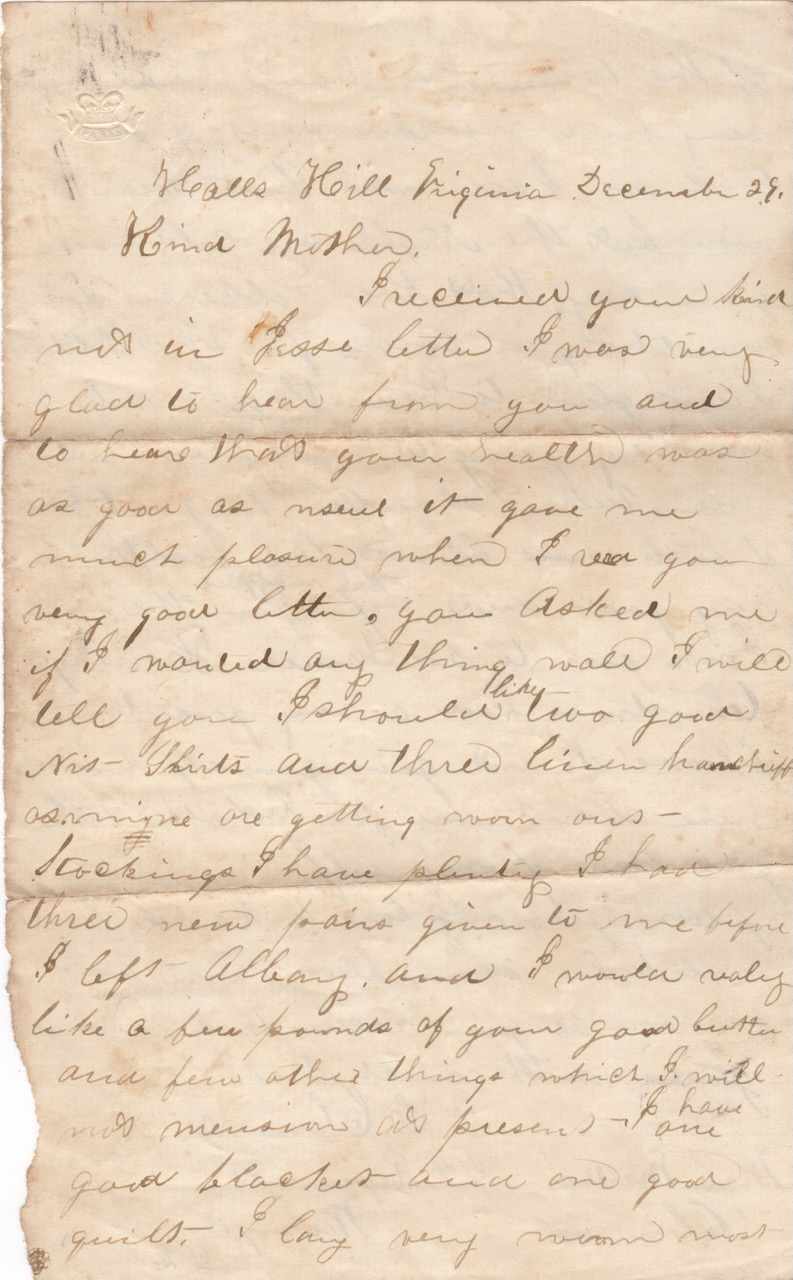 PARIS
Halls Hill Virginia December 29.
Kind Mother.
I received your kind
not in Jesse letter I was very
glad to hear from you and
to hear that your health was
as good as usual it gave me
much plasure when I read your
very good letter, you Asked me
if I wanted any thing wall I will
tell you I should like two good
Nit Shirts and three linen
as mine are getting worn out
Stockings I have plenty I had
three new pairs given to me before
I left Albany. and I would realy
like a few pounds of your good butter
and few other things which I will
not mension at present I have one
good blacket and one good
quilt. I lay very warm most